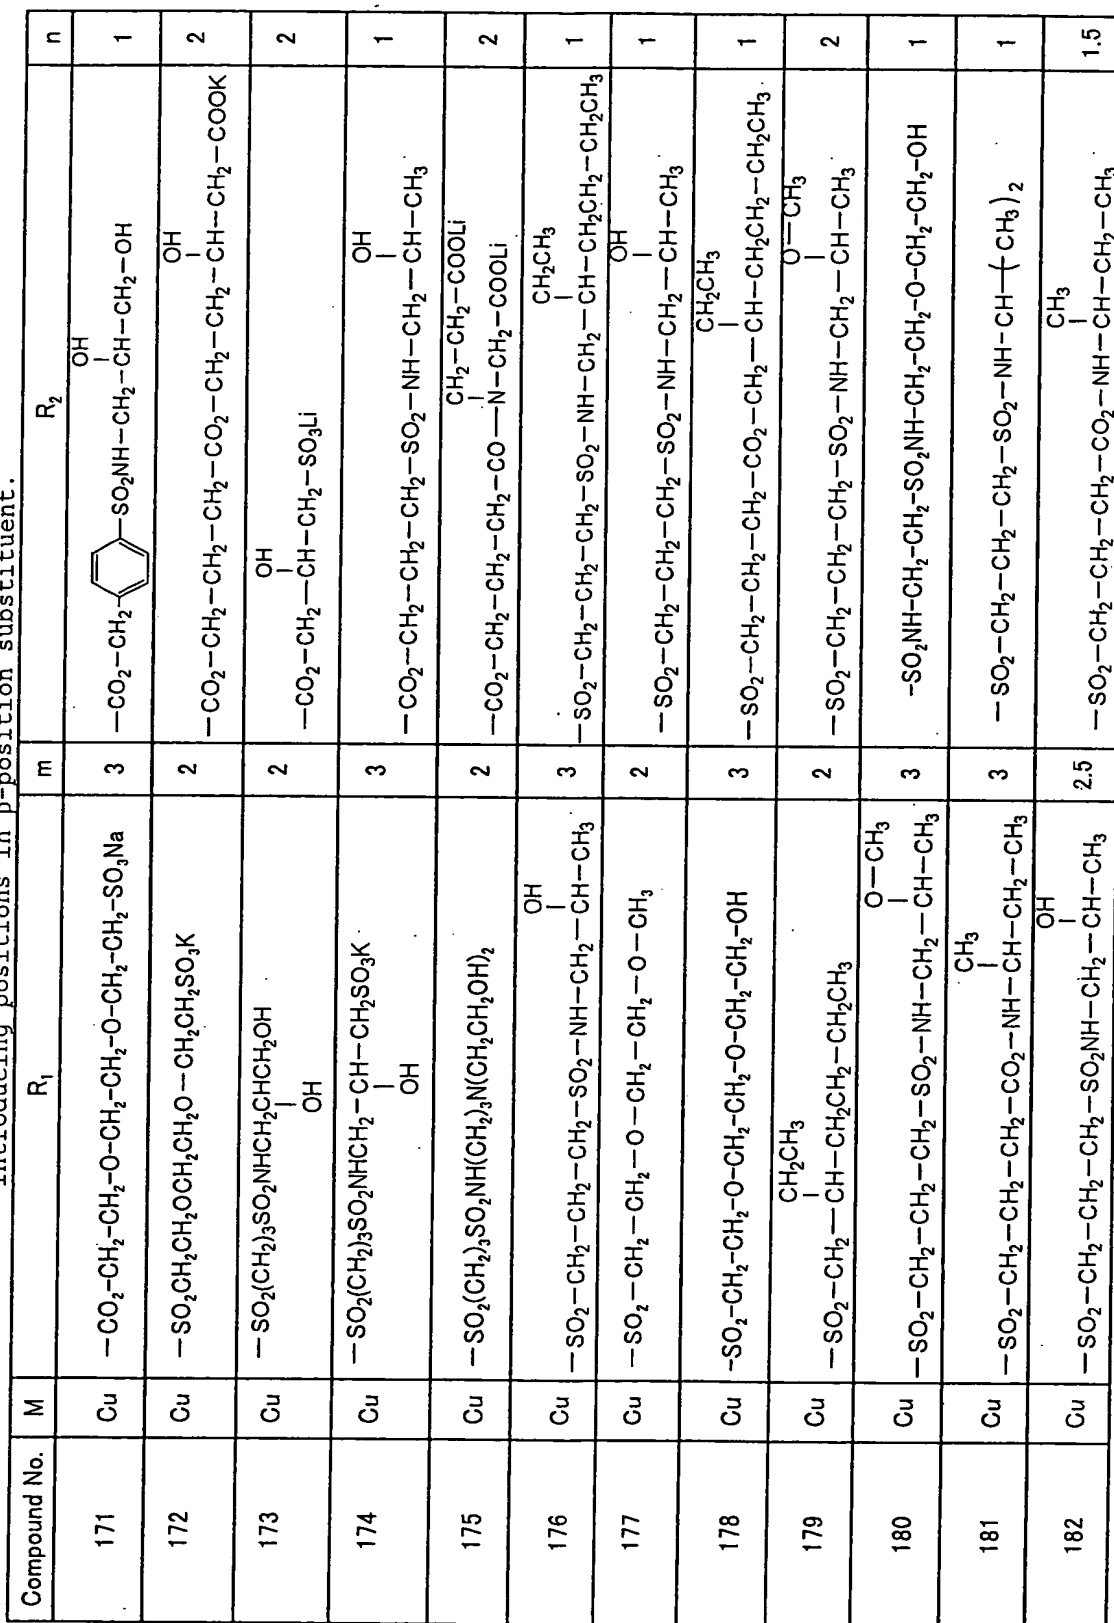 introducing positions in β-position substituent.
Compound No. M R₁ m R₂ n
171 Cu —CO₂-CH₂-CH₂-O-CH₂-CH₂-O-CH₂-CH₂-SO₃Na 3 —CO₂-CH₂-⌬-SO₂NH-CH₂-CH(OH)-CH₂-OH 1
172 Cu —SO₂CH₂CH₂OCH₂CH₂O—CH₂CH₂SO₃K 2 —CO₂-CH₂-CH₂-CH₂-CO₂-CH₂-CH₂-CH(OH)-CH₂-COOK 2
173 Cu —SO₂(CH₂)₃SO₂NHCH₂CH(OH)CH₂OH 2 —CO₂-CH₂-CH(OH)-CH₂-SO₃Li 2
174 Cu —SO₂(CH₂)₃SO₂NHCH₂-CH(OH)-CH₂SO₃K 3 —CO₂-CH₂-CH₂-CH₂-SO₂-NH-CH₂-CH(OH)-CH₃ 1
175 Cu —SO₂(CH₂)₃SO₂NH(CH₂)₃N(CH₂CH₂OH)₂ 2 —CO₂-CH₂-CH₂-CH₂-CO-N(CH₂-CH₂-COOLi)-CH₂-COOLi 2
176 Cu —SO₂-CH₂-CH₂-CH₂-SO₂-NH-CH₂-CH(OH)-CH₃ 3 —SO₂-CH₂-CH₂-CH₂-SO₂-NH-CH₂-CH(CH₂CH₃)-CH₂CH₂-CH₂CH₃ 1
177 Cu —SO₂-CH₂-CH₂-O-CH₂-CH₂-O-CH₃ 2 —SO₂-CH₂-CH₂-CH₂-SO₂-NH-CH₂-CH(OH)-CH₃ 1
178 Cu -SO₂-CH₂-CH₂-O-CH₂-CH₂-O-CH₂-CH₂-OH 3 —SO₂-CH₂-CH₂-CH₂-CO₂-CH₂-CH(CH₂CH₃)-CH₂CH₂-CH₂CH₃ 1
179 Cu —SO₂-CH₂-CH(CH₂CH₃)-CH₂CH₂-CH₂CH₃ 2 —SO₂-CH₂-CH₂-CH₂-SO₂-NH-CH₂-CH(O—CH₃)-CH₃ 2
180 Cu —SO₂-CH₂-CH₂-CH₂-SO₂-NH-CH₂-CH(O—CH₃)-CH₃ 3 -SO₂NH-CH₂-CH₂-SO₂NH-CH₂-CH₂-O-CH₂-CH₂-OH 1
181 Cu —SO₂-CH₂-CH₂-CH₂-CO₂-NH-CH(CH₃)-CH₂-CH₃ 3 —SO₂-CH₂-CH₂-CH₂-SO₂-NH-CH-(CH₃)₂ 1
182 Cu —SO₂-CH₂-CH₂-CH₂-SO₂NH-CH₂-CH(OH)-CH₃ 2.5 —SO₂-CH₂-CH₂-CH₂-CO₂-NH-CH(CH₃)-CH₂-CH₃ 1.5